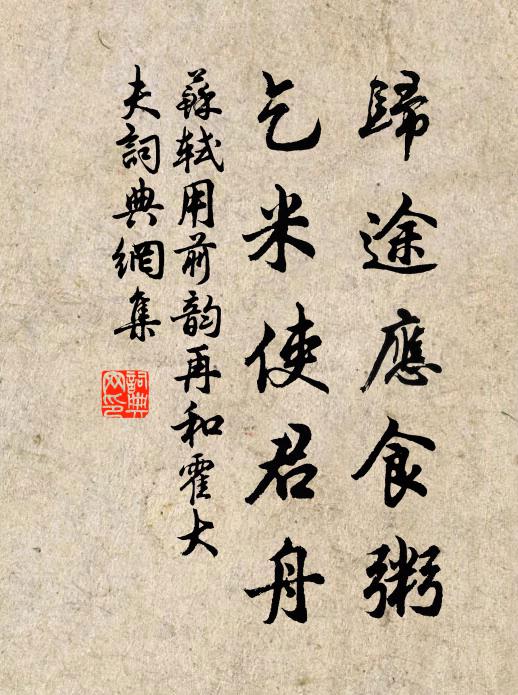 歸途應食粥
乞米使君舟
蘇軾用前韵再和霍大
夫詞典網集
詞典
网印